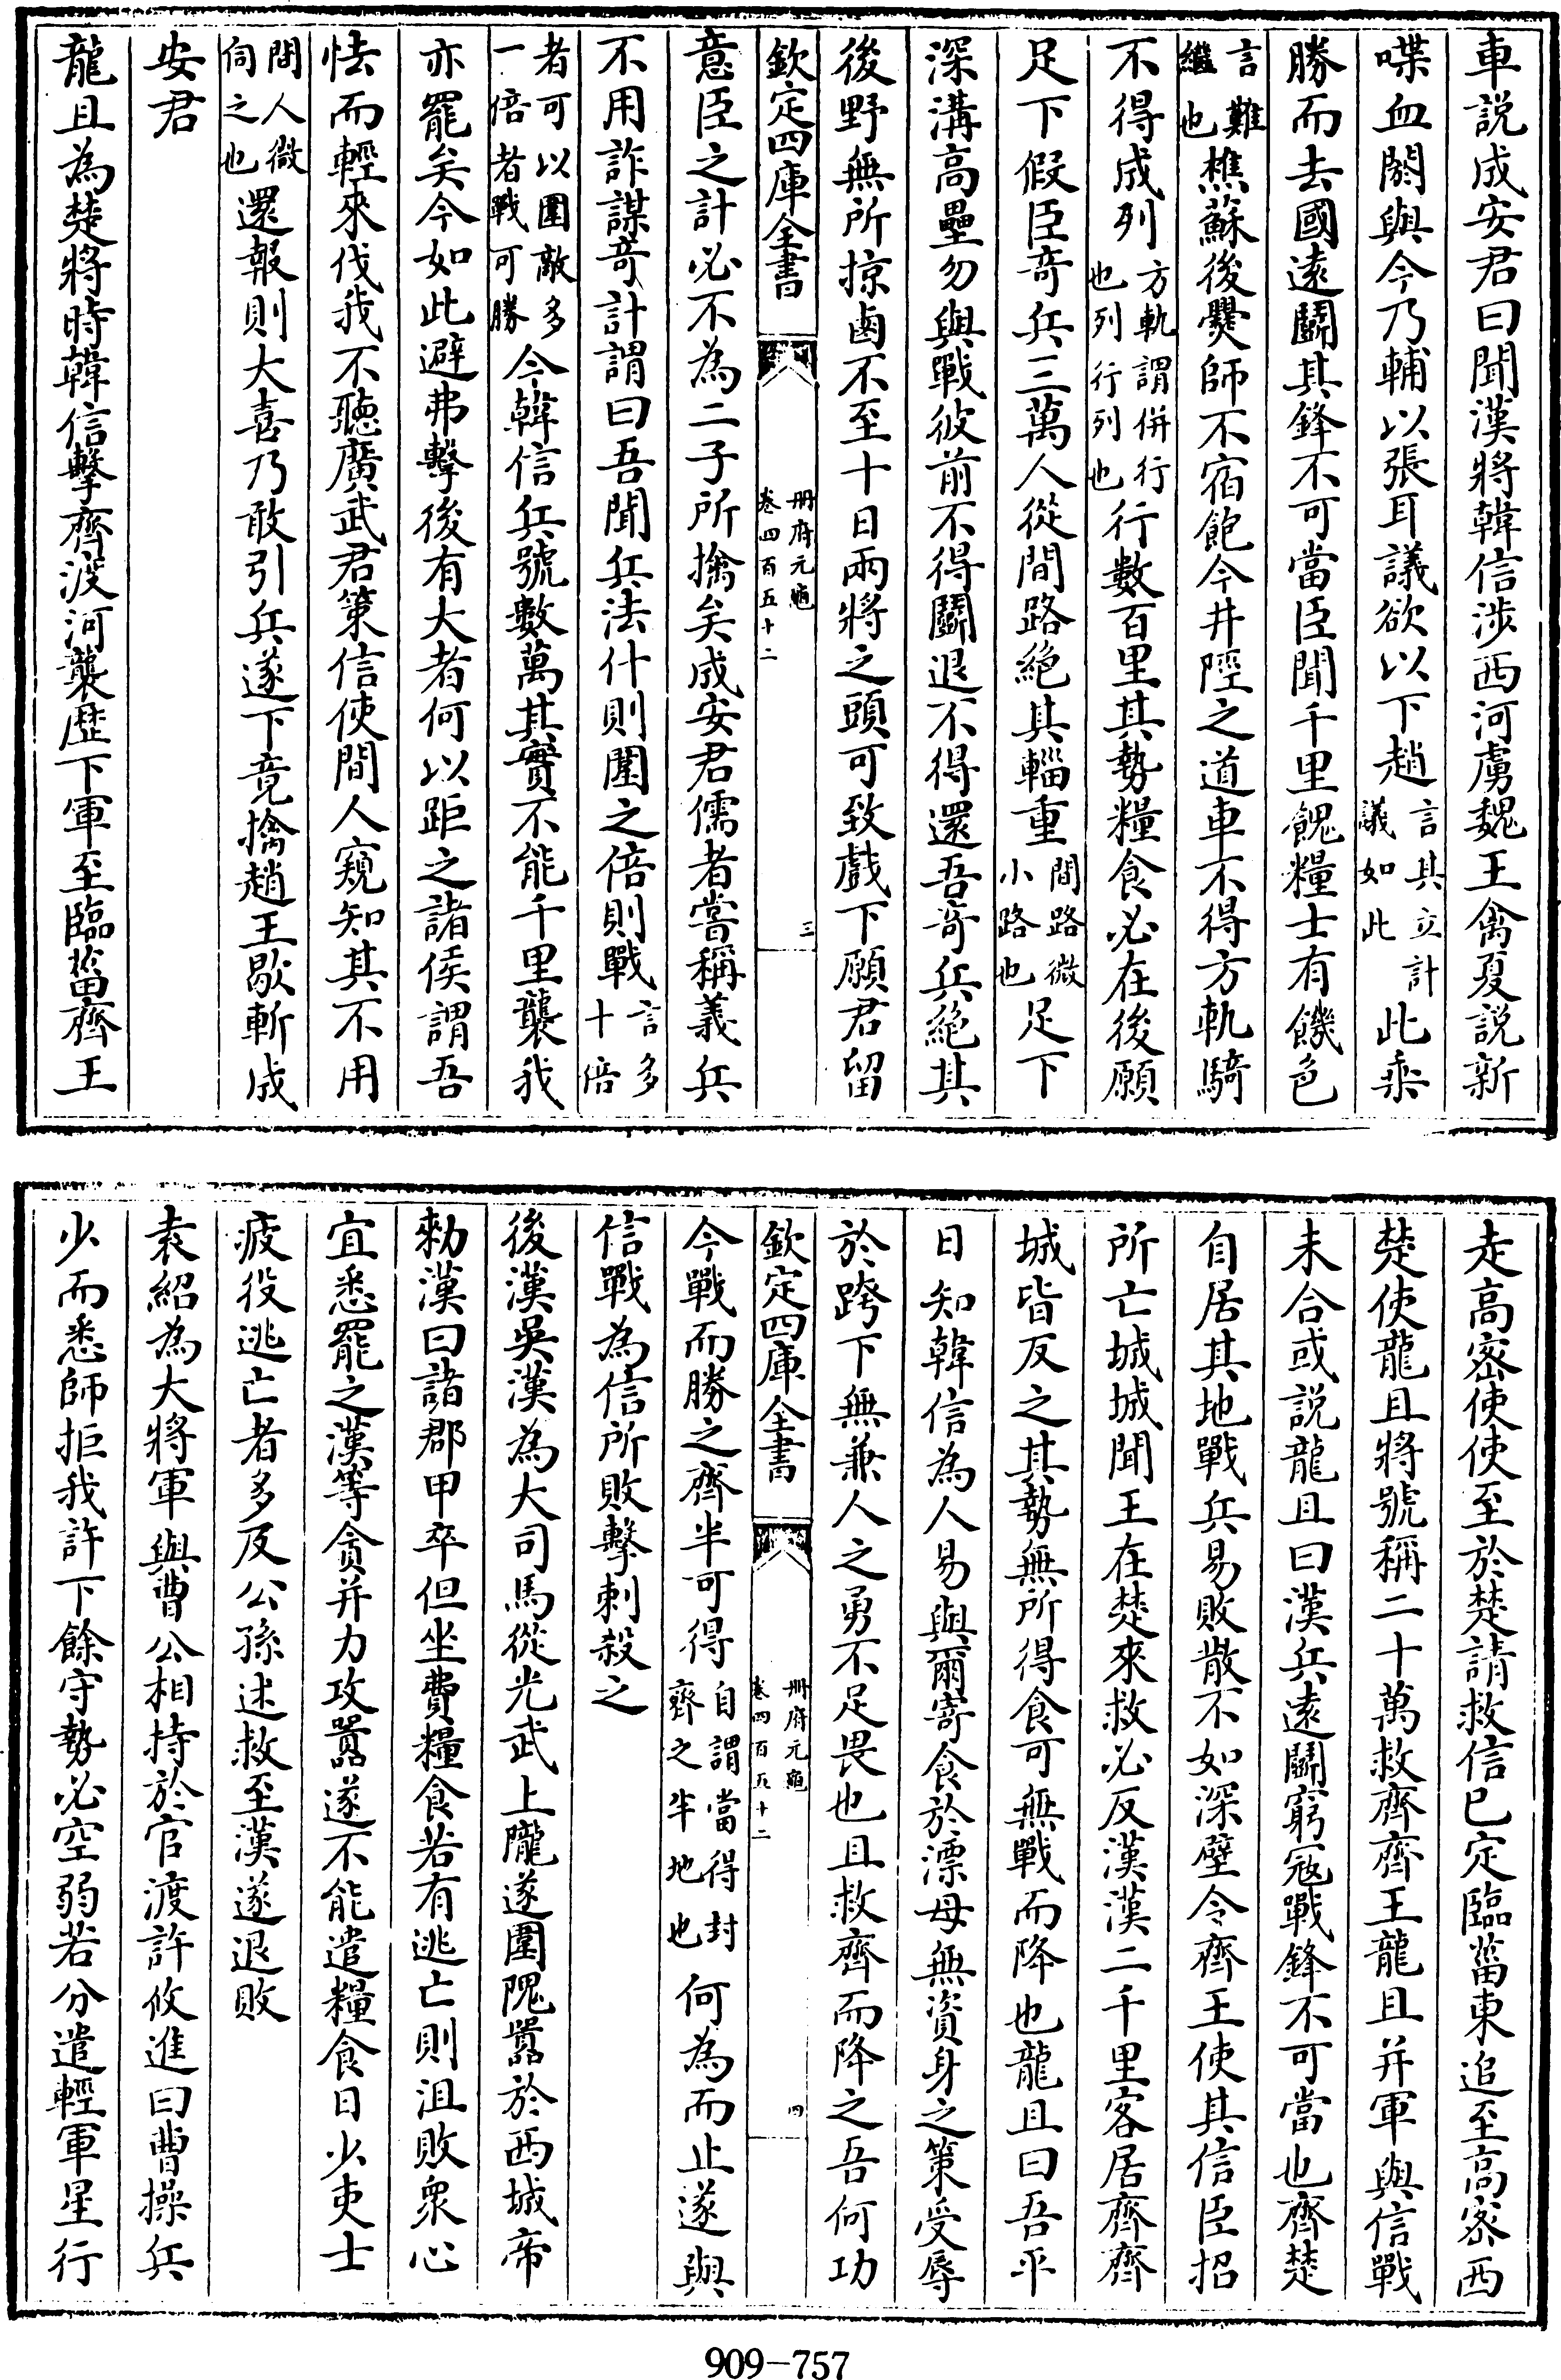 車説成安君曰聞漢將韓信涉西河虜魏王禽夏説新
喋血閼與今乃輔以張耳議欲以下趙言其立計議如此此乘
勝而去國遠鬭其鋒不可當臣聞千里餽糧士有饑色
言難繼也樵蘇後爨師不宿飽今井陘之道車不得方軌騎
不得成列方軌謂併行也列行列也行數百里其勢糧食必在後願
足下假臣竒兵三萬人從間路絶其輜重間路微小路也足下
深溝高壘勿與戰彼前不得鬭退不得還吾竒兵絶其
後野無所掠鹵不至十日兩將之頭可致戲下願君留
欽定四庫全書
冊府元龜
卷四百五十二
三
意臣之計必不為二子所擒矣成安君儒者嘗稱義兵
不用詐謀竒計謂曰吾聞兵法什則圍之倍則戰言多十倍
者可以圍敵多一倍者戰可勝今韓信兵號數萬其實不能千里襲我
亦罷矣今如此避弗擊後有大者何以距之諸侯謂吾
怯而輕來伐我不聽廣武君策信使間人窺知其不用
間人微伺之也還報則大喜乃敢引兵遂下竟擒趙王歇斬成
安君
龍且為楚將時韓信擊齊渡河襲歴下軍至臨菑齊王
走高密使使至於楚請救信已定臨菑東追至高密西
楚使龍且將號稱二十萬救齊齊王龍且并軍與信戰
未合或説龍且曰漢兵遠鬭窮寇戰鋒不可當也齊楚
自居其地戰兵易敗散不如深壁令齊王使其信臣招
所亡城城聞王在楚來救必反漢漢二千里客居齊齊
城皆反之其勢無所得食可無戰而降也龍且曰吾平
日知韓信為人易與爾寄食於漂母無資身之策受辱
於跨下無兼人之勇不足畏也且救齊而降之吾何功
欽定四庫全書
冊府元龜
卷四百五十二
四
今戰而勝之齊半可得自謂當得封齊之半地也何為而止遂與
信戰為信所敗擊刺殺之
後漢吳漢為大司馬從光武上隴遂圍隗囂於西城帝
勅漢曰諸郡甲卒但坐費糧食若有逃亡則沮敗衆心
宜悉罷之漢等貪并力攻囂遂不能遣糧食日少吏士
疲役逃亡者多及公孫述救至漢遂退敗
袁紹為大將軍與曹公相持於官渡許攸進曰曹操兵
少而悉師拒我許下餘守勢必空弱若分遣輕軍星行
909-757